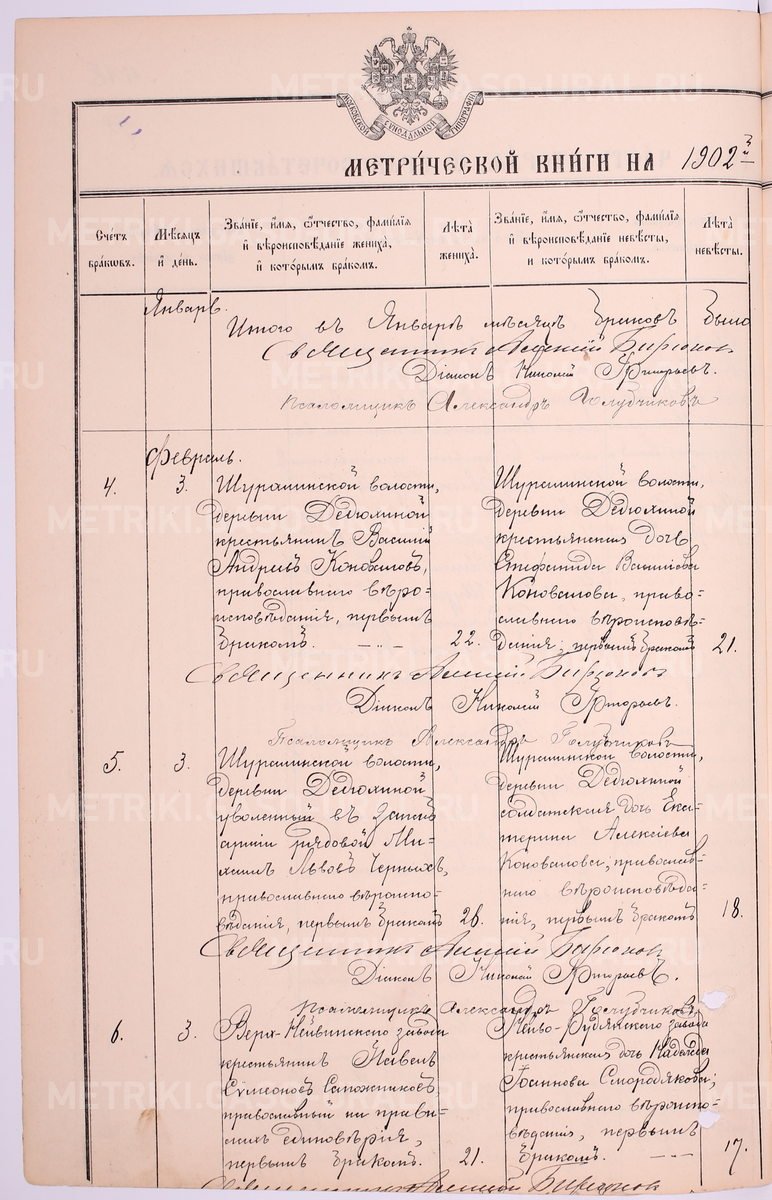 МОСКОВСКОЙ СѴНОДАЛЬНОЙ ТИПОГРАФІИ
МЕТРИ́ЧЕСКОЙ КНИ́ГИ НА 1902 й
Счéтъ бра́ковъ.
Мѣ́сяцъ и҆ де́нь.
Зва́нїе, и҆́мѧ, ѻ҆́тчество, фами́лїѧ
и҆ вѣроисповѣ́данїе жениха̀,
и҆ кото́рымъ бра́комъ.
Лѣ́та
жениха̀.
Зва́нїе, и҆́мѧ, ѻ҆́тчество, фами́лїѧ
и҆ вѣроисповѣ́данїе невѣ́сты,
и҆ кото́рымъ бра́комъ.
Лѣ́та
невѣ́сты.
Январь.
Итого въ Январѣ мѣсяцѣ браковъ было
Священникъ Алексій Бирюковъ
Діаконъ Николай Григорьевъ.
Псаломщикъ Александръ Голубчиковъ
Февраль.
4.
3.
Шуралинской волости,
деревни Дедюлиной
крестьянинъ Василій
Андреевъ Коноваловъ,
православнаго вѣро-
исповѣданія, первымъ
бракомъ.
22.
Шуралинской волости,
деревни Дедюлиной
крестьянская дочь
Васильева
Коновалова, право-
славнаго вѣроисповѣ-
данія, первымъ бракомъ
21.
Священникъ Алексій Бирюковъ
Діаконъ Николай Григорьевъ.
Псаломщикъ Александръ Голубчиковъ
5.
3.
Шуралинской волости,
деревни Дедюлиной
уволенный въ запасъ
арміи рядовой Ми-
хаилъ Львовъ Черныхъ,
православнаго вѣроиспо-
вѣданія, первымъ бракомъ
26.
Шуралинской волости,
деревни Дедюлиной
солдатская дочь Ека-
терина Алексіева
Коновалова, православ-
наго вѣроисповѣда-
нія, первымъ бракомъ
18.
Священникъ Алексій Бирюковъ
Діаконъ Николай Григорьевъ.
Псаломщикъ Александръ Голубчиковъ
6.
3.
Верх-Нейвинскаго завода
крестьянинъ Павелъ
Сѵмеоновъ Сапожниковъ,
православный на прави-
лахъ единовѣрія,
первымъ бракомъ.
21.
Нейво-Рудянскаго завода
крестьянская дочь Надежда
Іоаннова Смородякова;
православнаго вѣроиспо-
вѣданія, первымъ
бракомъ.
17.
Священникъ Алексій Бирюковъ
METRIKI.GASO-URAL.RU